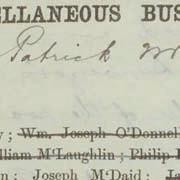 ELLANEOUS BUS
Patrick M
y ; Wm. Joseph O'Donnel
lliam M'Laughlin ; Philip
n ; Joseph M'Daid ; Ja